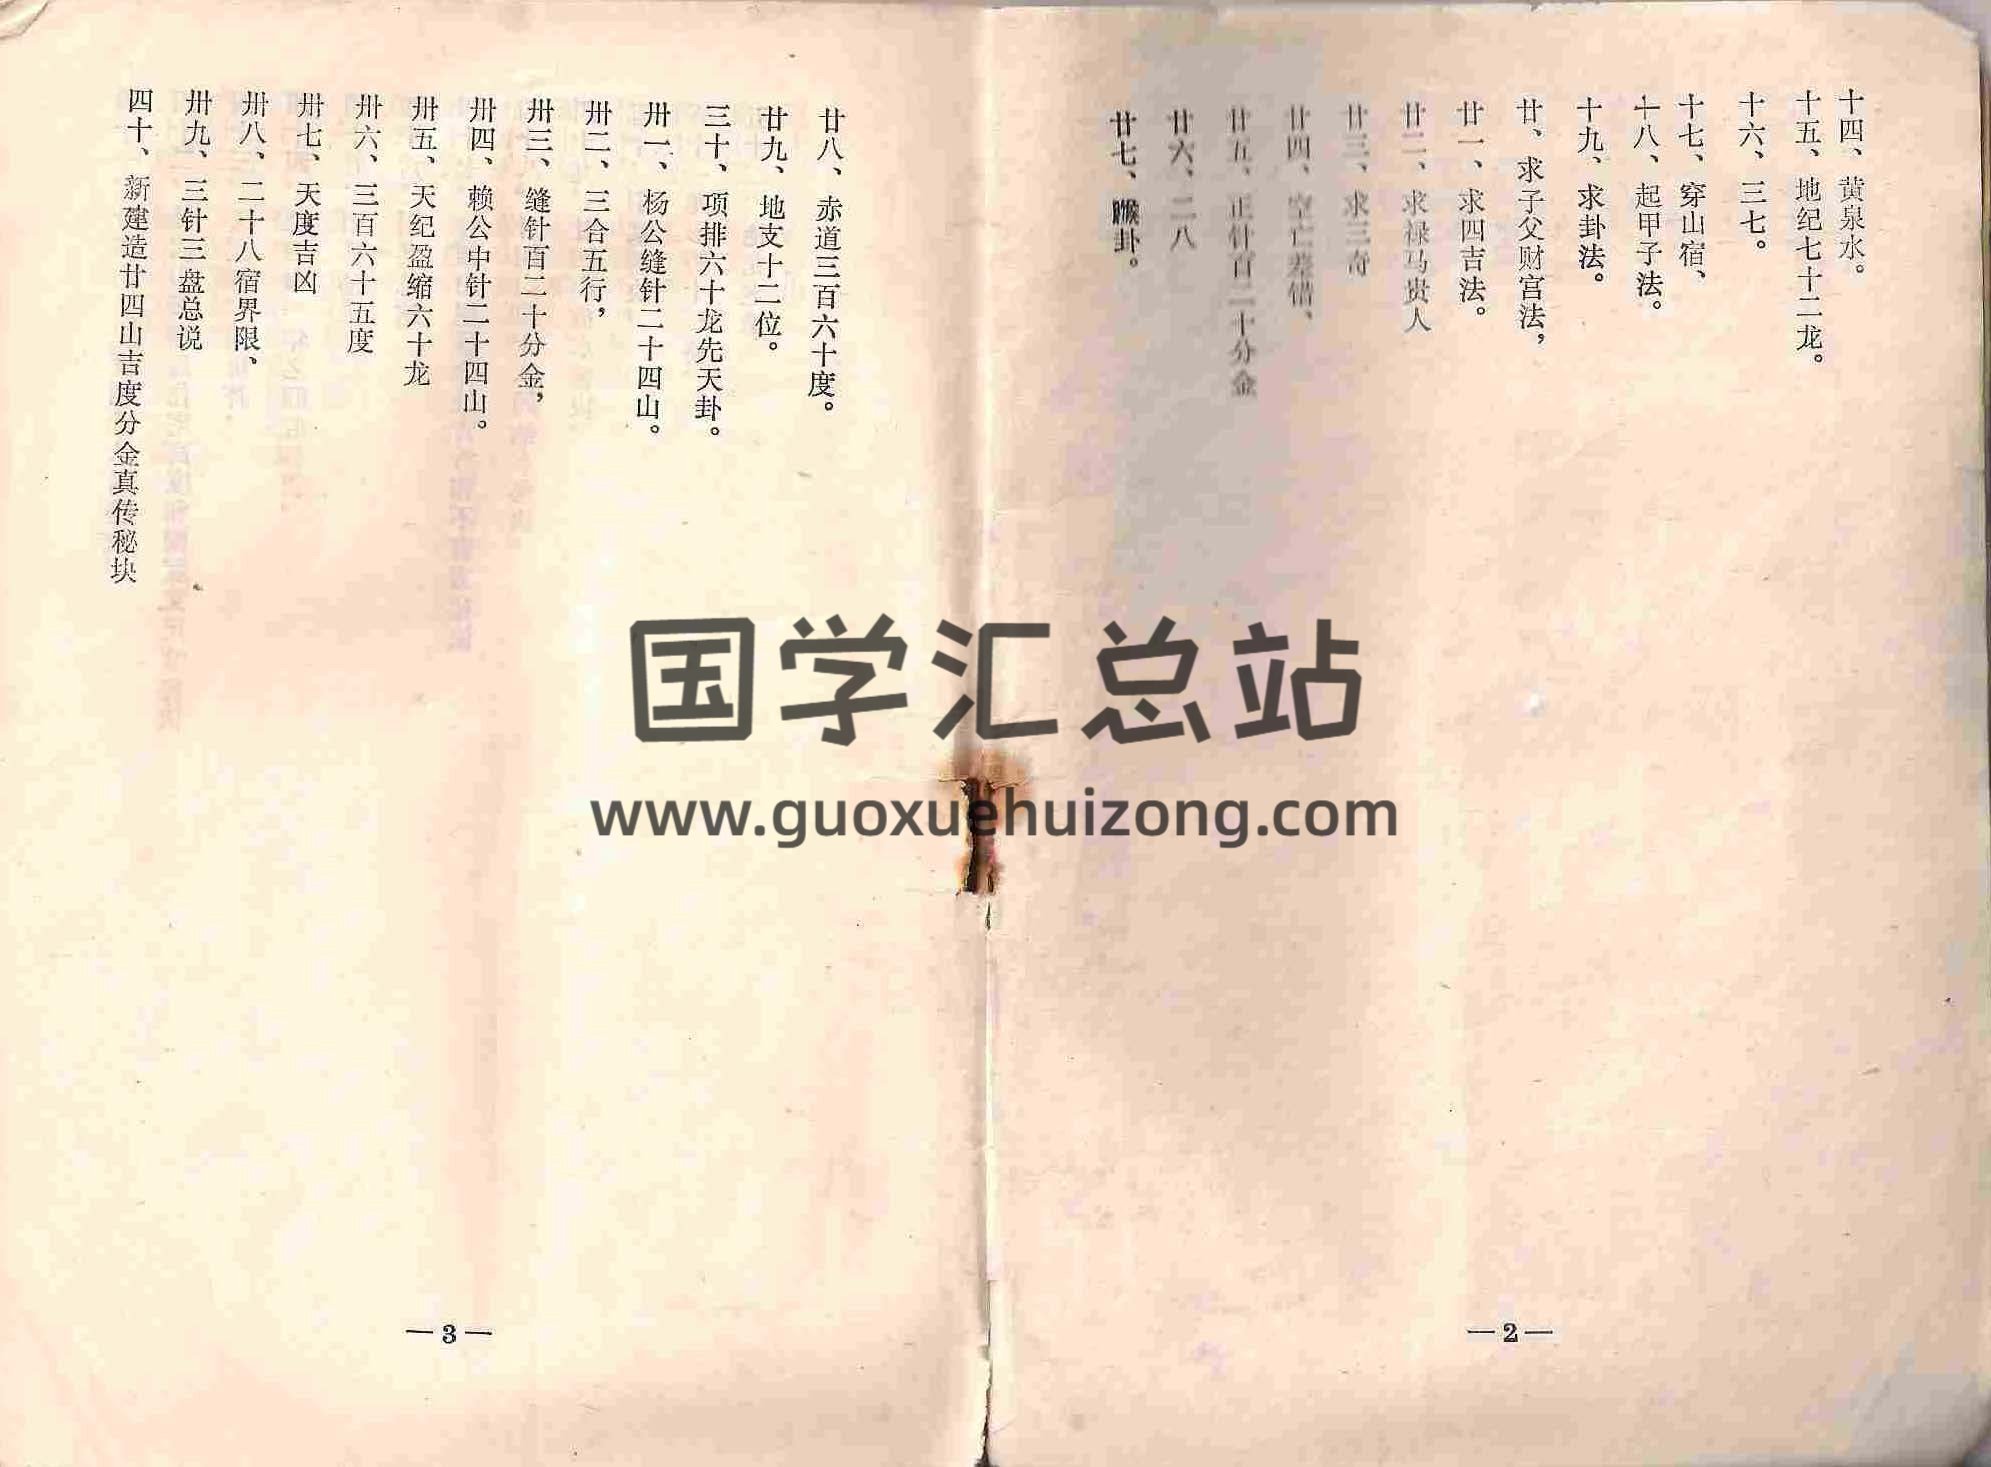 十四、黄泉水。
十五、地纪七十二龙。
十六、三七。
十七、穿山宿、
十八、起甲子法。
十九、求卦法。
廿、求子父财宫法，
廿一、求四吉法。
廿二、求禄马贵人
廿三、求三奇
廿四、空亡差错、
廿五、正针百二十分金
廿六、二八
廿七、卦。
—2—
廿八、赤道三百六十度。
廿九、地支十二位。
三十、项排六十龙先天卦。
卅一、杨公缝针二十四山。
卅二、三合五行，
卅三、缝针百二十分金，
卅四、赖公中针二十四山。
卅五、天纪盈缩六十龙
卅六、三百六十五度
卅七、天度吉凶
卅八、二十八宿界限、
卅九、三针三盘总说
四十、新建造廿四山吉度分金真传秘块
—3—
国学汇总站
www.guoxuehuizong.com